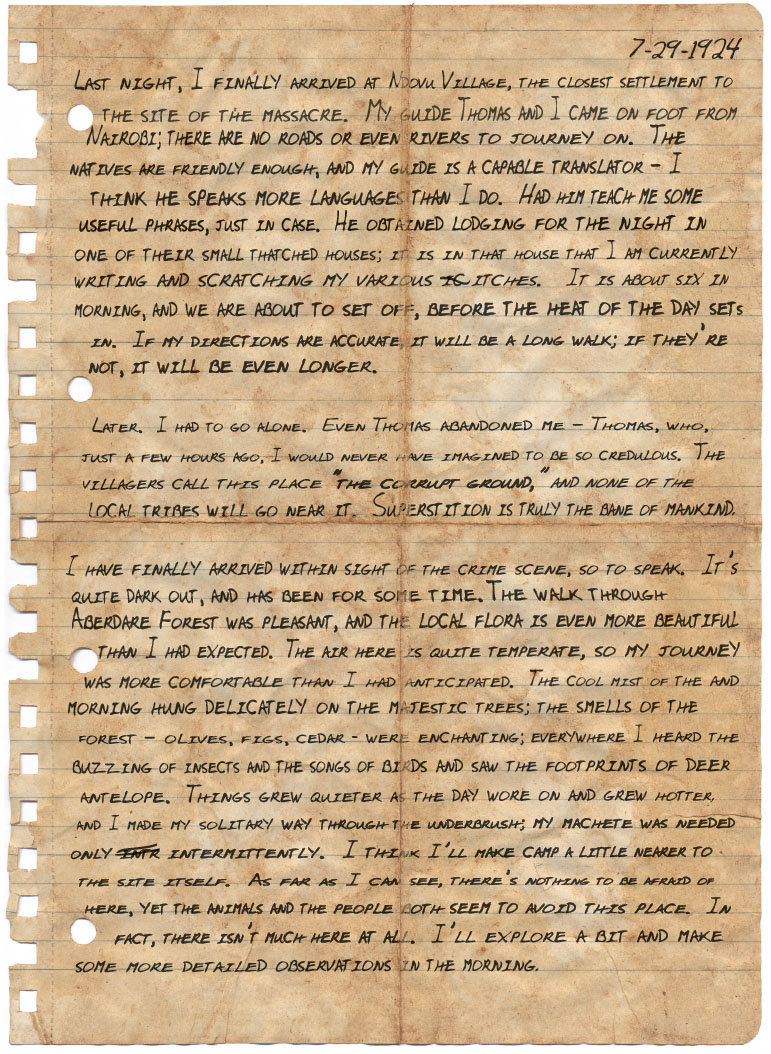 7-29-1924
Last night, I finally arrived at Ndovu Village, the closest settlement to
the site of the massacre. My guide Thomas and I came on foot from
Nairobi; there are no roads or even rivers to journey on. The
natives are friendly enough, and my guide is a capable translator - I
think he speaks more languages than I do. Had him teach me some
useful phrases, just in case. He obtained lodging for the night in
one of their small thatched houses; it is in that house that I am currently
writing and scratching my various ic itches. It is about six in
morning, and we are about to set off, before the heat of the day sets
in. If my directions are accurate, it will be a long walk; if they're
not, it will be even longer.
Later. I had to go alone. Even Thomas abandoned me - Thomas, who,
just a few hours ago, I would never have imagined to be so credulous. The
villagers call this place "the corrupt ground," and none of the
local tribes will go near it. Superstition is truly the bane of mankind.
I have finally arrived within sight of the crime scene, so to speak. It's
quite dark out, and has been for some time. The walk through
Aberdare Forest was pleasant, and the local flora is even more beautiful
than I had expected. The air here is quite temperate, so my journey
was more comfortable than I had anticipated. The cool mist of the and
morning hung delicately on the majestic trees; the smells of the
forest - olives, figs, cedar - were enchanting; everywhere I heard the
buzzing of insects and the songs of birds and saw the footprints of deer
antelope. Things grew quieter as the day wore on and grew hotter,
and I made my solitary way through the underbrush; my machete was needed
only intr intermittently. I think I'll make camp a little nearer to
the site itself. As far as I can see, there's nothing to be afraid of
here, yet the animals and the people both seem to avoid this place. In
fact, there isn't much here at all. I'll explore a bit and make
some more detailed observations in the morning.